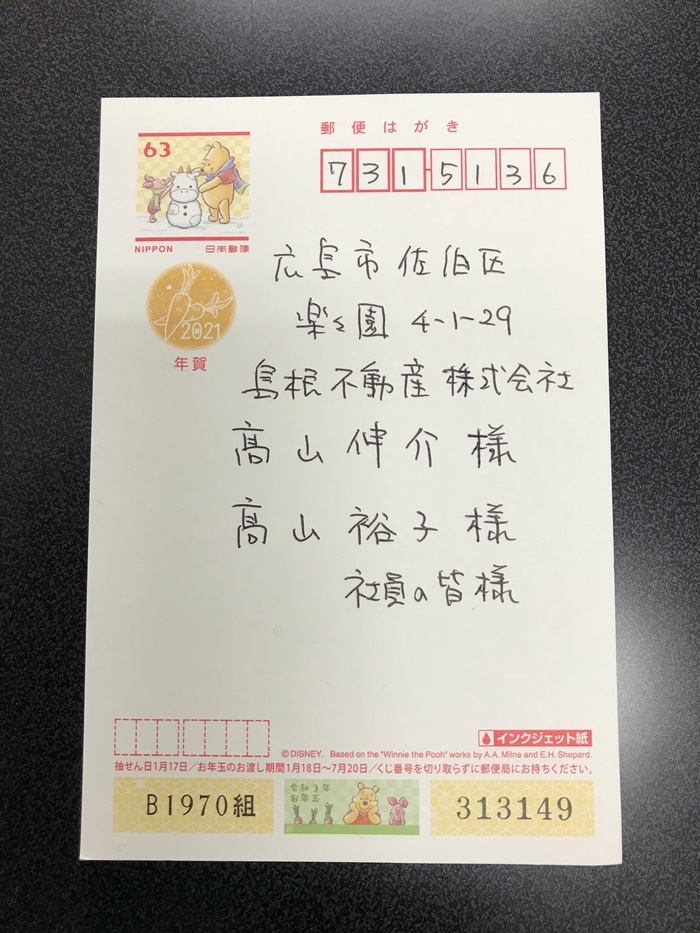 郵便はがき
63
NIPPON 日本郵便
731-5136
2021
年賀
広島市佐伯区
楽々園 4-1-29
島根不動産株式会社
髙山伸介様
髙山裕子様
社員の皆様
インクジェット紙
©DISNEY. Based on the "Winnie the Pooh" works by A.A. Milne and E.H. Shepard.
抽せん日1月17日／お年玉のお渡し期間1月18日～7月20日／くじ番号を切り取らずに郵便局にお持ちください。
B1970組
令和3年
お年玉
313149